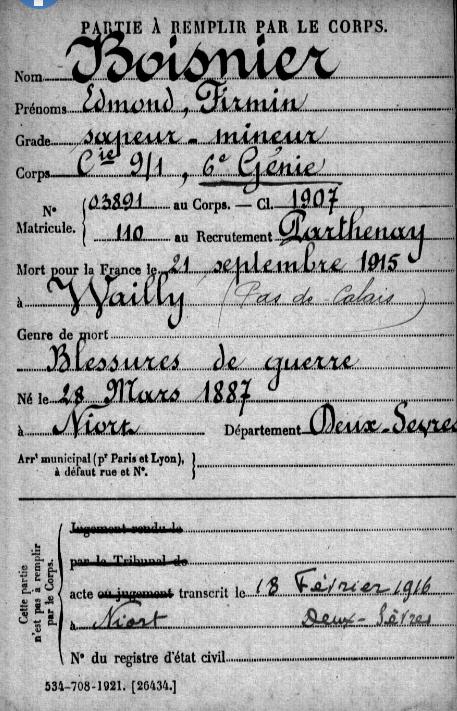 PARTIE À REMPLIR PAR LE CORPS.
Nom Boisnier
Prénoms Edmond, Firmin
Grade sapeur-mineur
Corps Cie 9/1, 6e Génie
N° Matricule. { 03891 au Corps. — Cl. 1907
110 au Recrutement Parthenay
Mort pour la France le 21 septembre 1915
à Wailly (Pas de-Calais)
Genre de mort
Blessures de guerre
Né le 28 Mars 1887
à Niort Département Deux-Sevres
Arrt municipal (pr Paris et Lyon), à défaut rue et N°. }
Cette partie n'est pas à remplir par le Corps.
Jugement rendu le
par le Tribunal de
acte ou jugement transcrit le 18 Février 1916
à Niort Deux-Sèvres
N° du registre d'état civil
534-708-1921. [26434.]